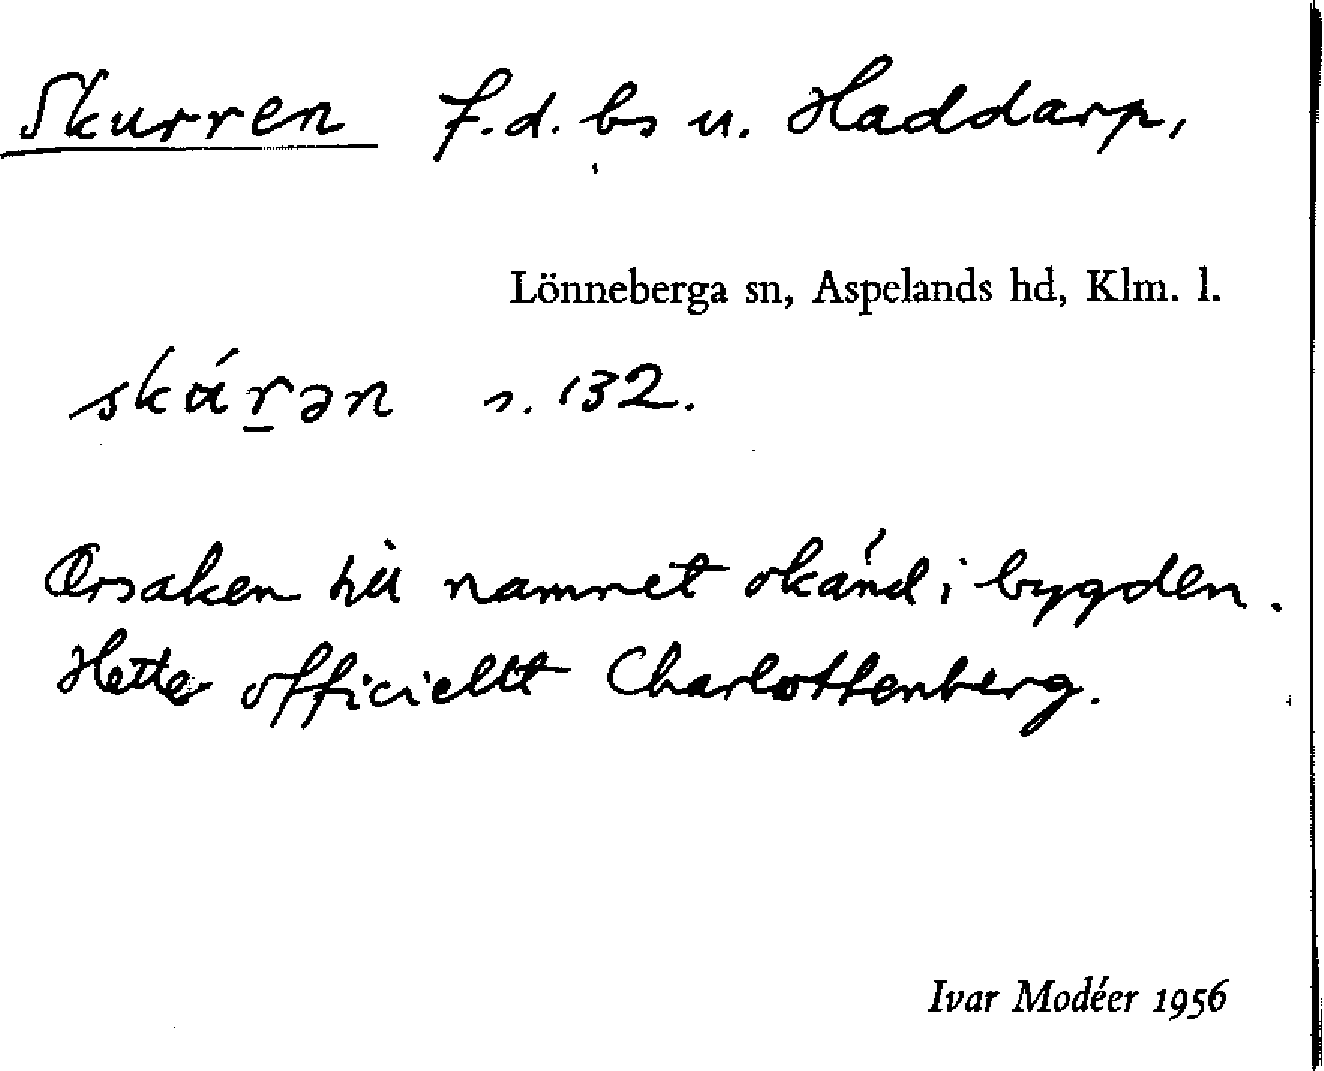 Skurren f.d. bs u. Haddarp,
Lönneberga sn, Aspelands hd, Klm. l.
skúr̲ən s. 132.
Orsaken till namnet okänd i bygden.
Hette officiellt Charlottenberg.
Ivar Modéer 1956